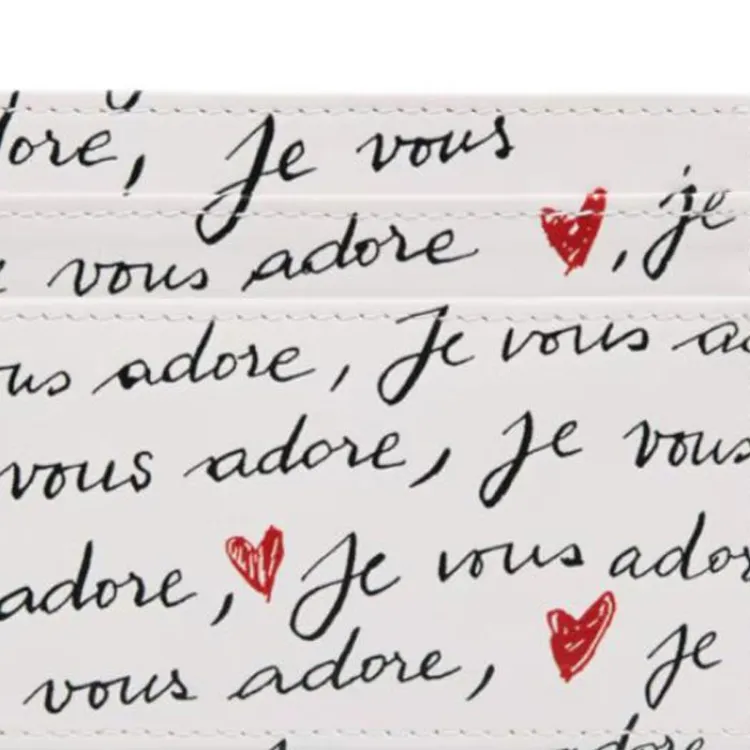 adore, Je vous
vous adore, je
vous adore, Je vous
vous adore, Je vous
adore, Je vous adore
vous adore, je
adore